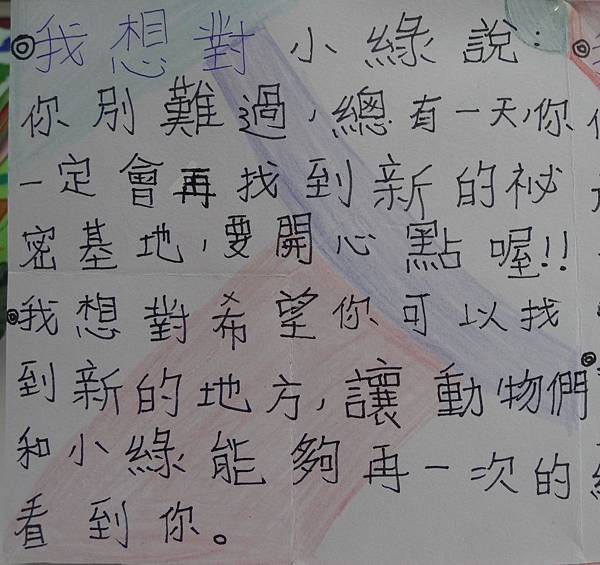 ◎我想對小綠說:
你別難過,總有一天,你
一定會再找到新的祕
密基地,要開心點喔!!
◎我想對希望你可以找
到新的地方,讓動物們
和小綠能夠再一次的
看到你。